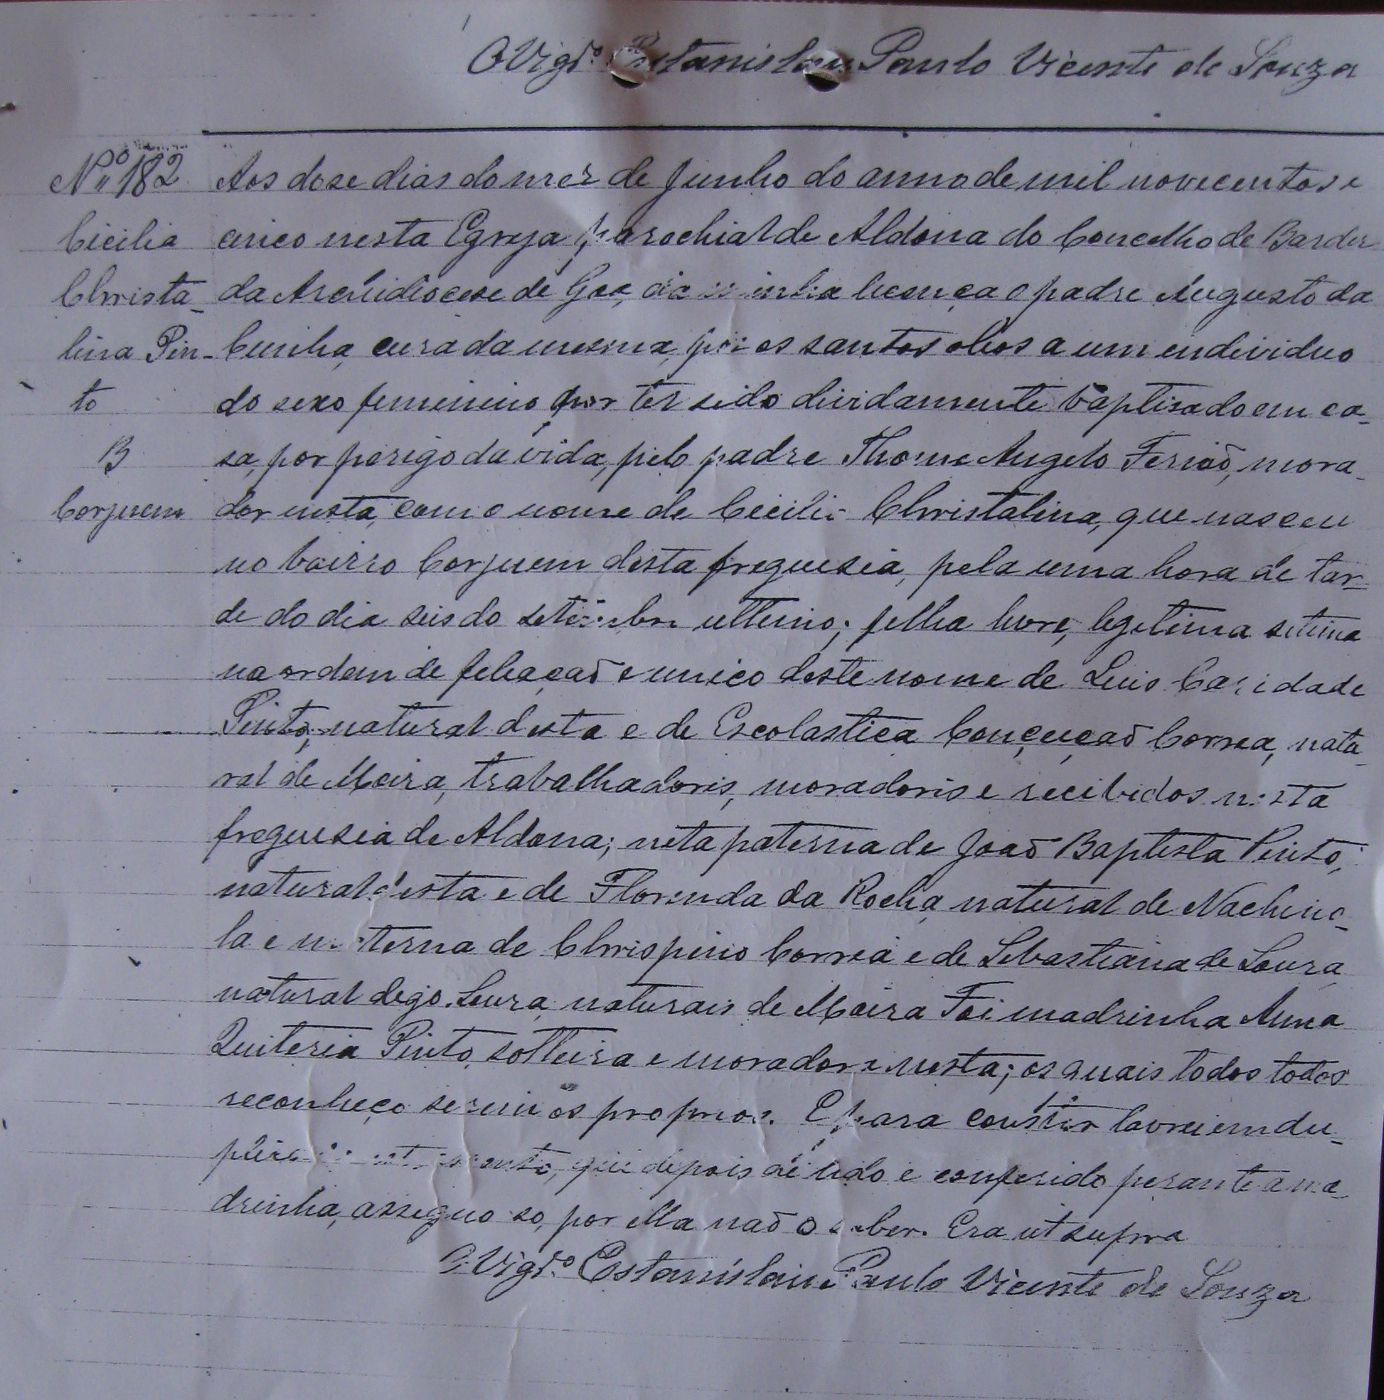 O Vigr.º Estanislau Paulo Vicente de Souza
Nº 182
Cicilia
Christa-
lina Pin-
to
B
Corjuem
Aos dose dias do mez de Junho do anno de mil novecentos e
cinco nesta Egreja parochial de Aldona do Concelho de Bardez
da Archidiocese de Goa, de minha licença o padre Augusto da
Cunha, cura da mesma, poz os santos olios a um individuo
do sexo feminino por ter sido dividamente baptisado em ca-
sa, por perigo da vida, pelo padre Thome Angelo Ferrão, mora-
dor nesta, com o nome de Cecilia Christalina, que nasceu
no bairro Corjuem desta freguesia, pela uma hora de tar-
de do dia seis do setembro ultimo; filha livre, legitima setima
na ordem de filiação e unico deste nome de Luis Caridade
Pinto, natural desta e de Escolastica Conceição Correa, natu-
ral de Moira, trabalhadores, moradores e recibidos nesta
freguesia de Aldona; neta paterna de João Baptista Pinto,
natural desta e de Florinda da Rocha natural de Nachino-
la e materna de Chrispino Correa e de Sebastiana de Souza
natural digo Souza, naturais de Moira Foi madrinha Anna
Quiteria Pinto, solteira e moradora nesta; os quais todos todos
reconheço serem os proprios. E para constar lavrei em du-
que depois de lido e conferido perante a ma-
drinha, assigno so, por ella não o saber. Era ut supra
O Vigr.º Estanislau Paulo Vicente de Souza